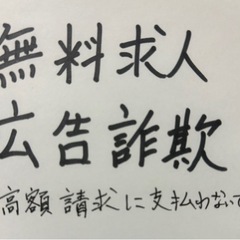 無料求人
広告詐欺
高額請求に支払わない